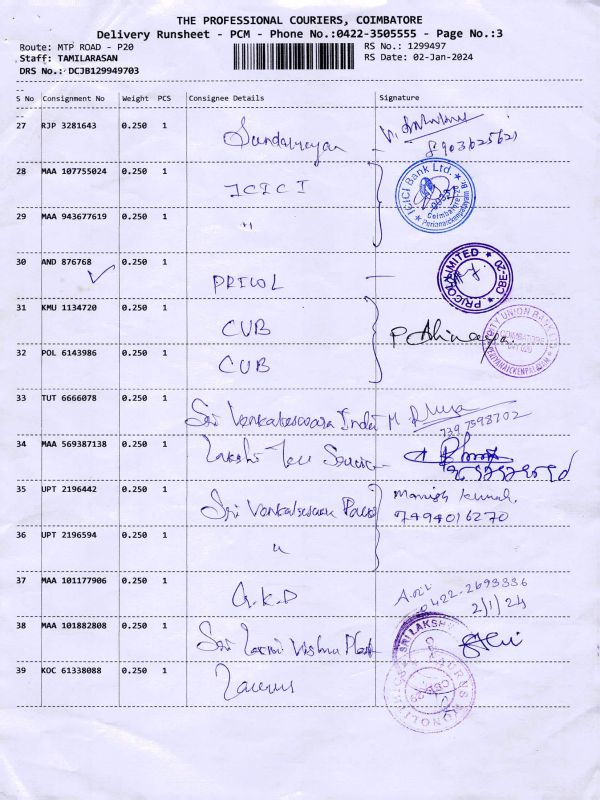 THE PROFESSIONAL COURIERS, COIMBATORE
Delivery Runsheet - PCM - Phone No.:0422-3505555 - Page No.:3
Route: MTP ROAD - P20 RS No.: 1299497
Staff: TAMILARASAN RS Date: 02-Jan-2024
DRS No.: DCJB129949703
S No Consignment No Weight PCS Consignee Details Signature
27 RJP 3281643 0.250 1
28 MAA 107755024 0.250 1 ICICI
ICICI Bank Ltd.
Coimbatore
29 MAA 943677619 0.250 1 "
30 AND 876768 0.250 1 PRICOL
PRICOL LIMITED CBE-20
31 KMU 1134720 0.250 1 CUB
CITY UNION BANK
COIMBATORE
32 POL 6143986 0.250 1 CUB
33 TUT 6666078 0.250 1 Sri Venkateswara
34 MAA 569387138 0.250 1
35 UPT 2196442 0.250 1 Sri Manish Kumar.
7494016270
36 UPT 2196594 0.250 1 "
37 MAA 101177906 0.250 1 G.K.D
0422-2693336
2/1/24
38 MAA 101882808 0.250 1 Sri Laxmi Vishnu
SRI LAKSH
39 KOC 61338088 0.250 1